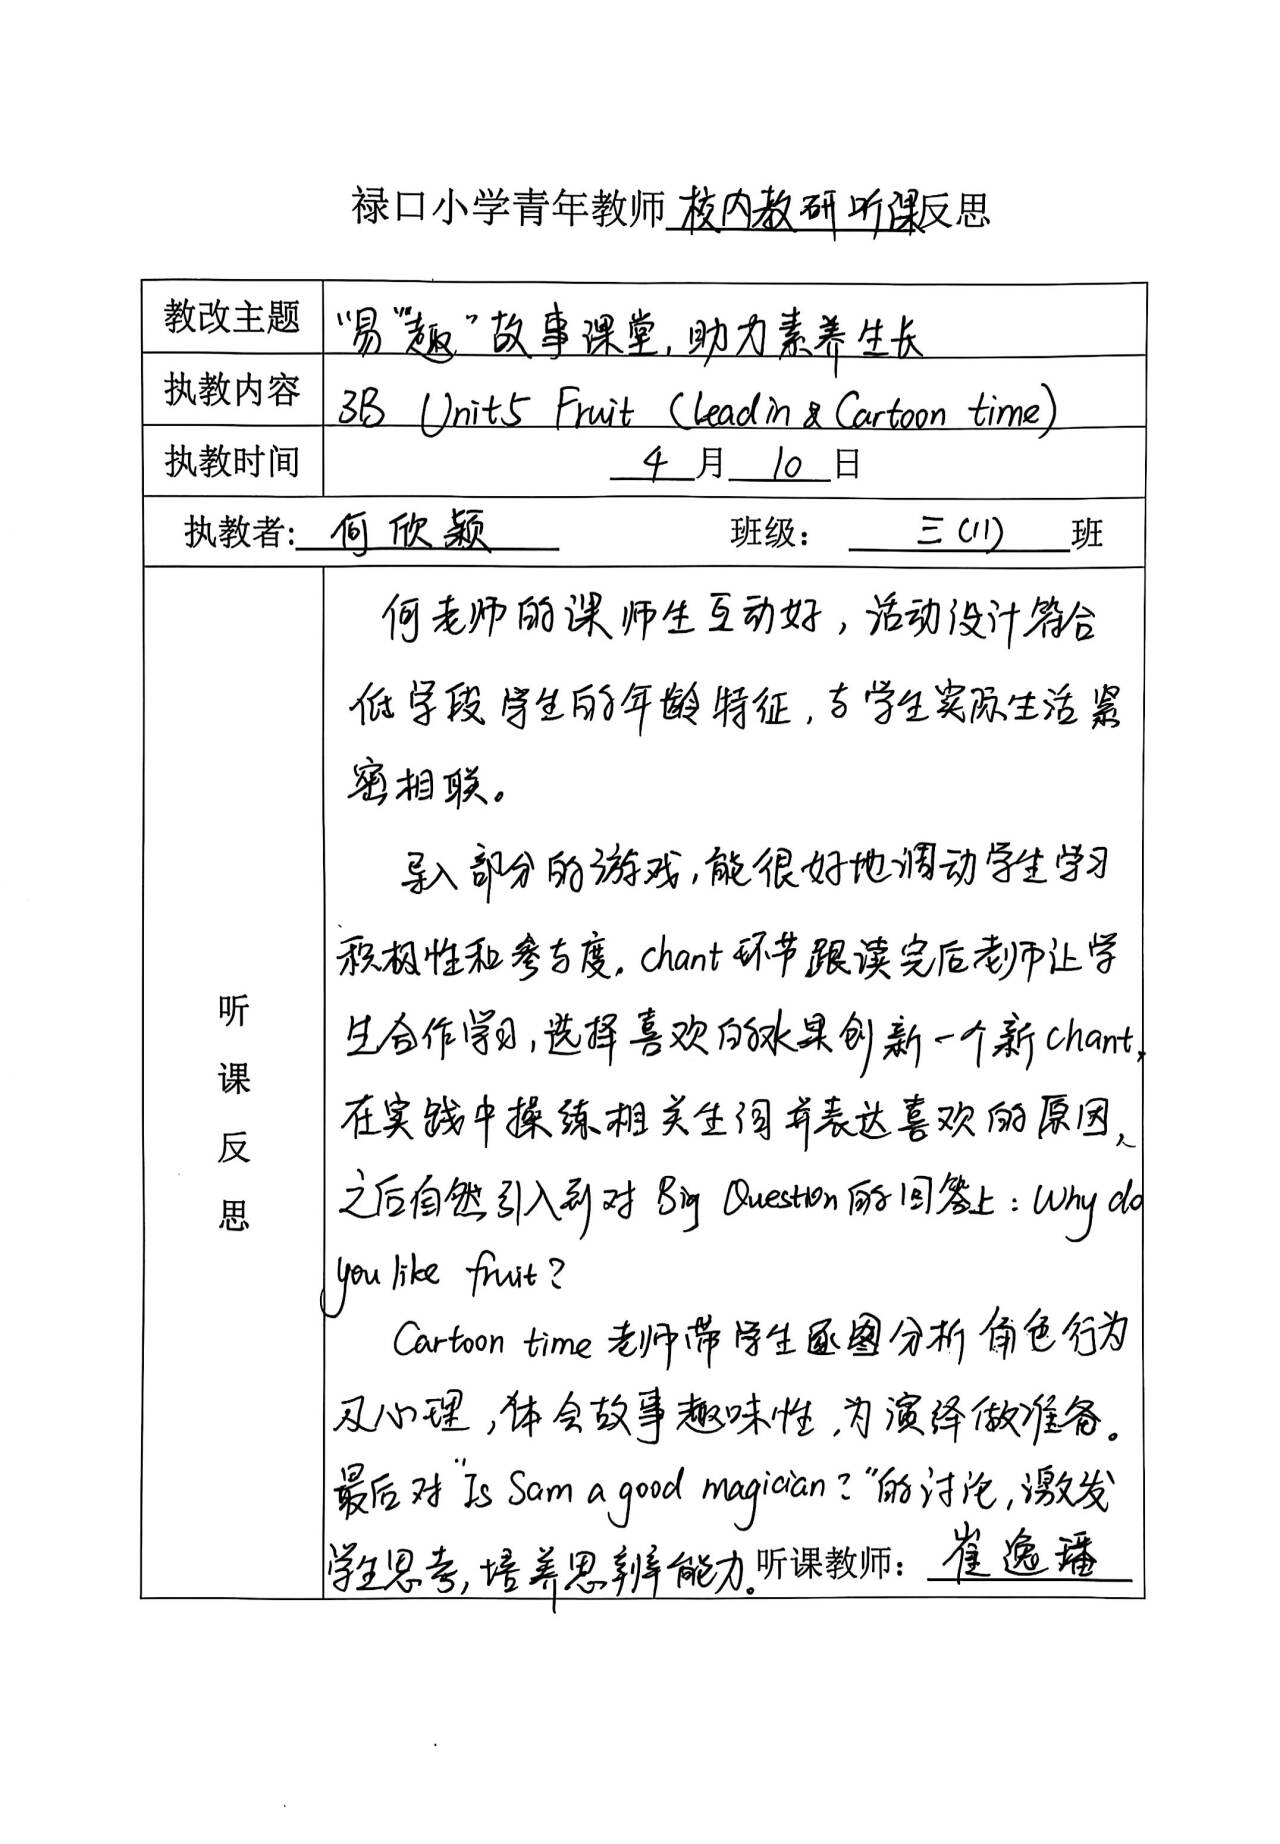 禄口小学青年教师校内教研听课反思
教改主题 “易”“趣”故事课堂，助力素养生长
执教内容 3B Unit5 Fruit (Lead in & Cartoon time)
执教时间 4月10日
执教者: 何欣颖 班级： 三（11）班
听课反思
何老师的课师生互动好，活动设计符合
低学段学生的年龄特征，与学生实际生活紧
密相联。
导入部分的游戏，能很好地调动学生学习
积极性和参与度。chant环节跟读完后老师让学
生合作学习，选择喜欢的水果创新一个新chant，
在实践中操练相关生词并表达喜欢的原因，
之后自然引入到对Big Question的回答上：Why do
you like fruit？
Cartoon time老师带学生逐图分析角色行为
及心理，体会故事趣味性，为演绎做准备。
最后对“Is Sam a good magician？”的讨论，激发
学生思考，培养思辨能力。听课教师： 崔逸璠